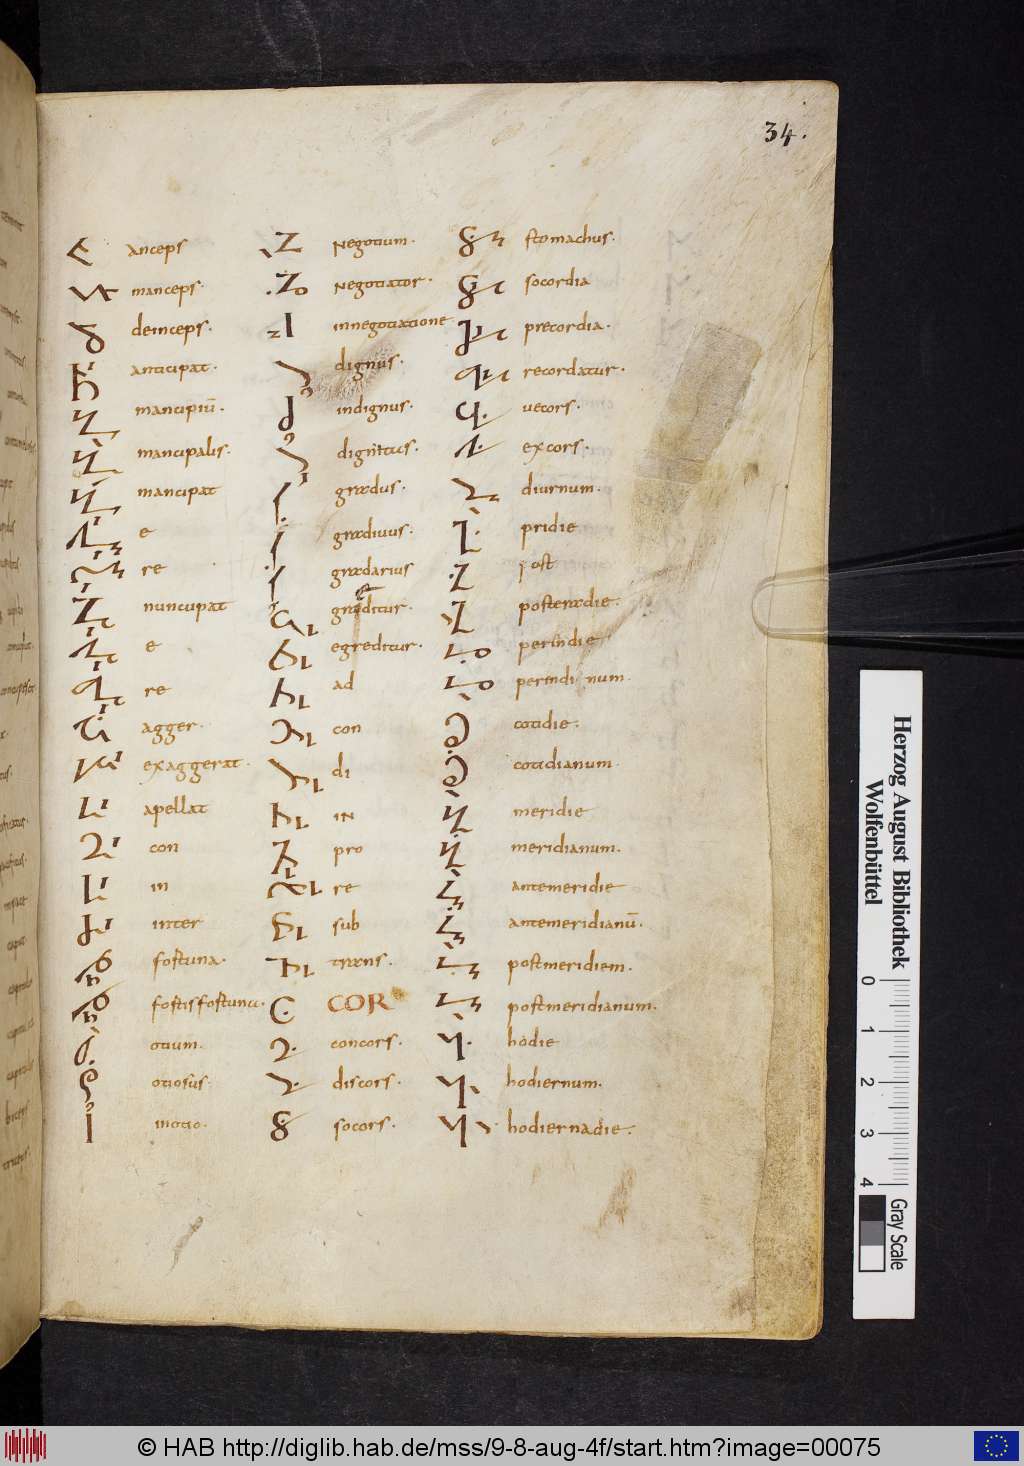 34.
Anceps
manceps.
deinceps.
anticipat.
mancipiū.
mancipalis.
mancipat
e
re
nuncupat
e
re
agger.
exaggerat.
apellat
con
in
inter
fortuna.
fortisfortuna.
otium.
otiosus.
inotio.
Negotium.
Negotiator.
innegotiatione
dignus.
indignus.
gradus.
gradivus.
gradarius
egreditur.
ad
con
di
IN
pro
re
sub
trans.
COR
concors.
discors.
socors.
stomachus.
socordia
precordia.
recordatur.
vecors.
excors.
diurnum.
pridie
post
posteradie.
perindie
perindi num.
cotidie.
cotidianum.
meridie
meridianum.
antemeridie
antemeridianū.
postmeridiem.
postmeridianum.
hodie
hodiernum.
hodiernadie.
Herzog August Bibliothek
Wolfenbüttel
0 1 2 3 4
Gray Scale
© HAB http://diglib.hab.de/mss/9-8-aug-4f/start.htm?image=00075